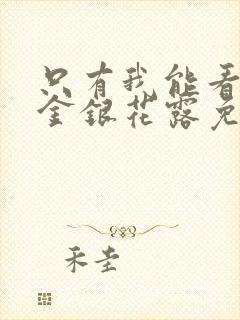 只有我能看
金银花露免
禾圭